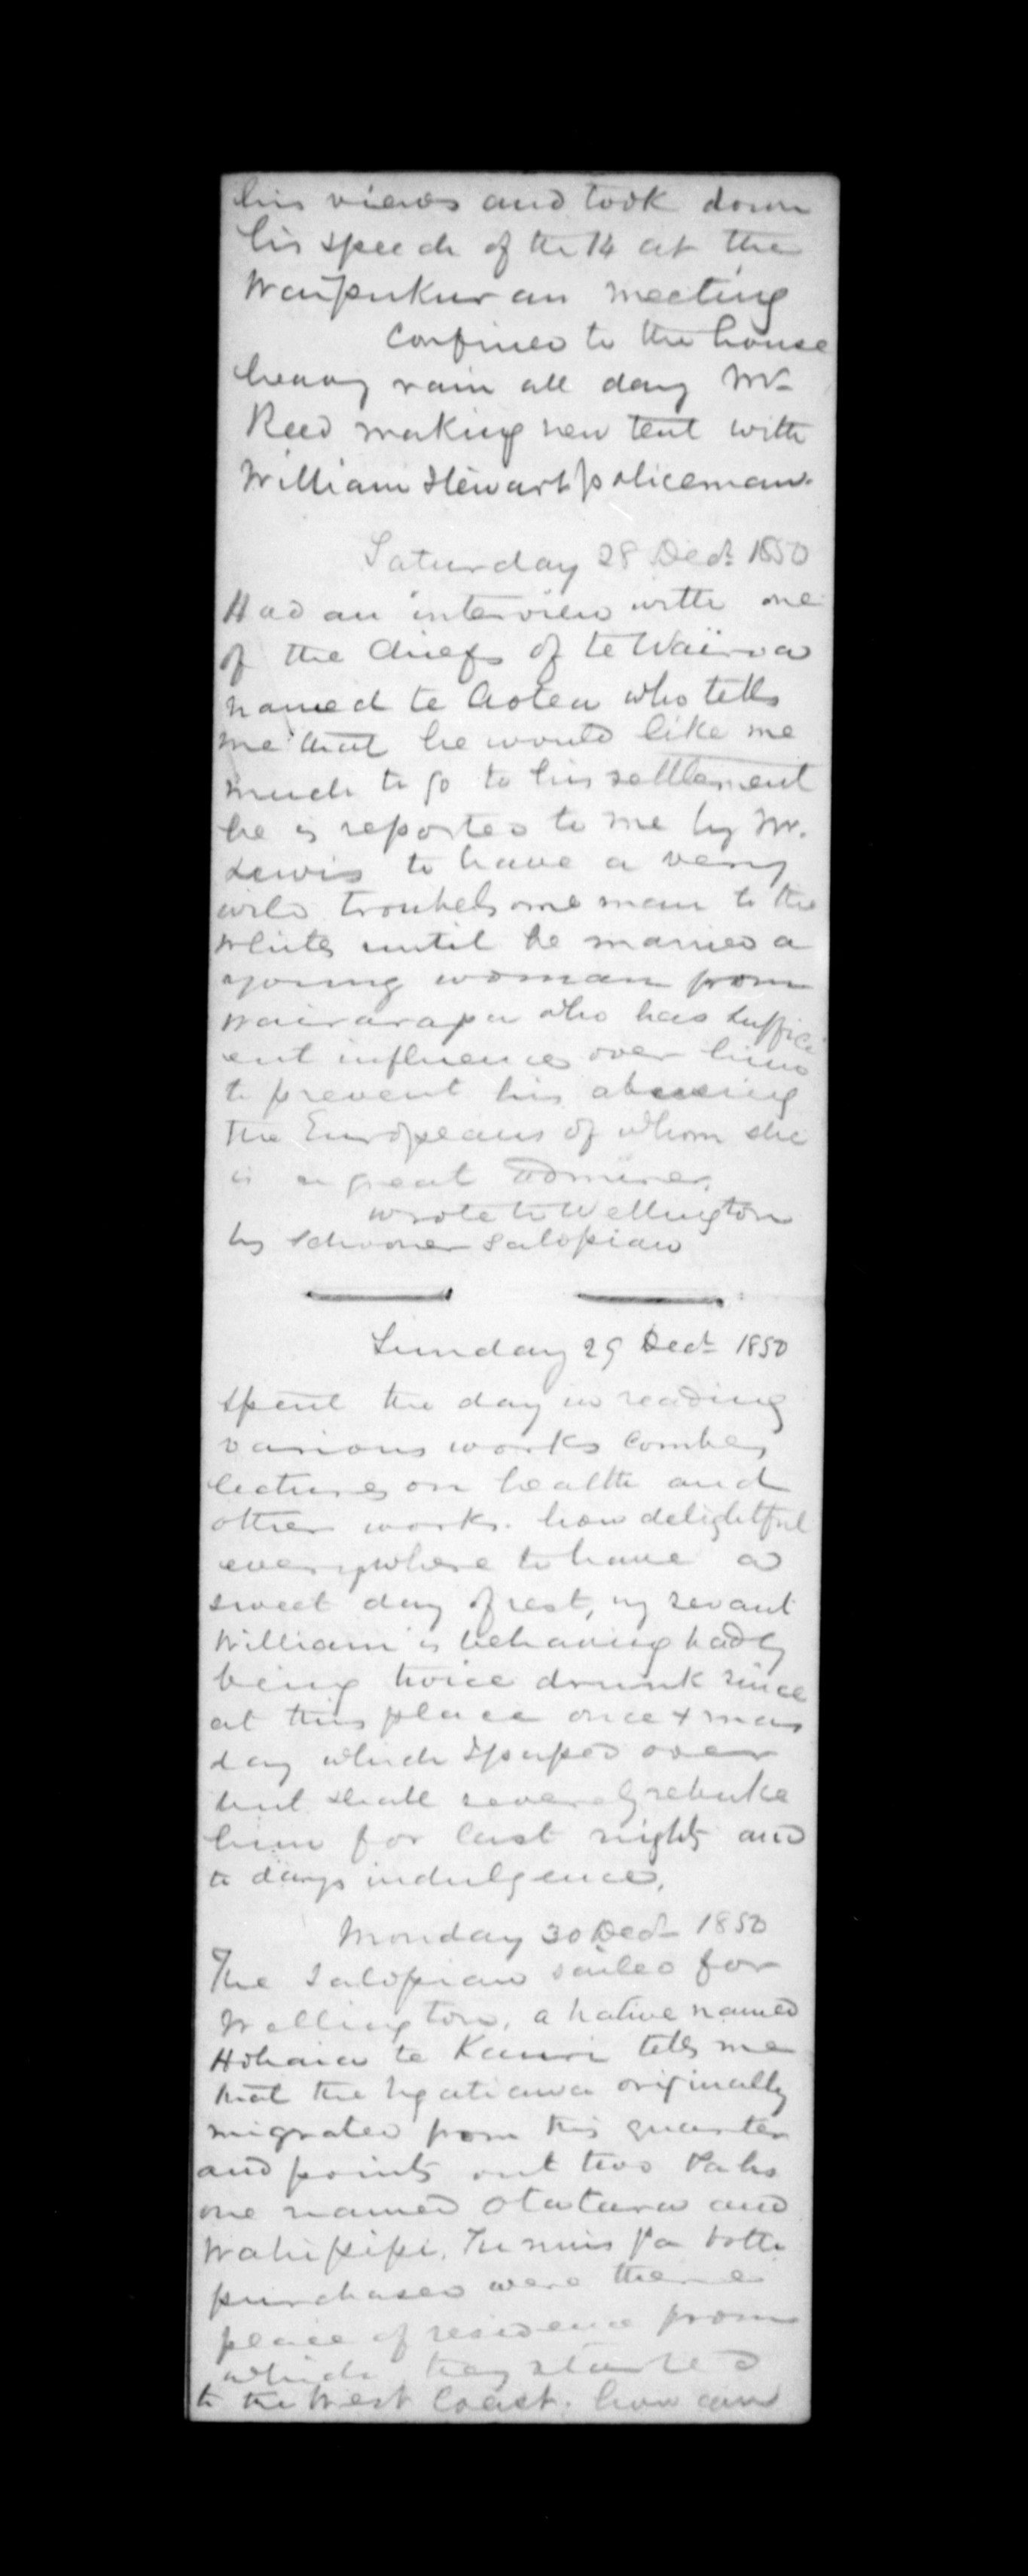 his views and took down
his speech of the 14 at the
Waipukurau meeting
Confined to the house
heavy rain all day Mr
Reed making new tent with
William Stewart policeman.
Saturday 28 Decr 1850
Had an interview with one
of the Chiefs of te Wairoa
named te Aotea who tells
me that he would like me
much to go to his settlement
he is reported to me by Mr.
Lewis to have a very
wild troubelsome man to the
whites until he married a
young woman from
Wairarapa who has suffici
ent influence over him
to prevent his abusing
the Europeans of whom she
is a great admirer.
wrote to Wellington
by Schooner Salopian
Sunday 29 Decr 1850
spent the day in reading
various works Combes
lectures on health and
other works. how delightful
everywhere to have a
sweet day of rest, my sevant
William is behaving badly
being twice drunk since
at this place once Xmas
day which I passed over
but shall severely rebuke
him for last nights and
to days indulgence.
Monday 30 Decr 1850
The Salopian sailed for
Wellington. a native named
Hohaia te
tells me
that the Ngatiawa originally
migrated from this quarter
and points out two Pahs
one named Otatara and
pa both
purchased were there
place of residence from
which they started
to the West Coast. how can